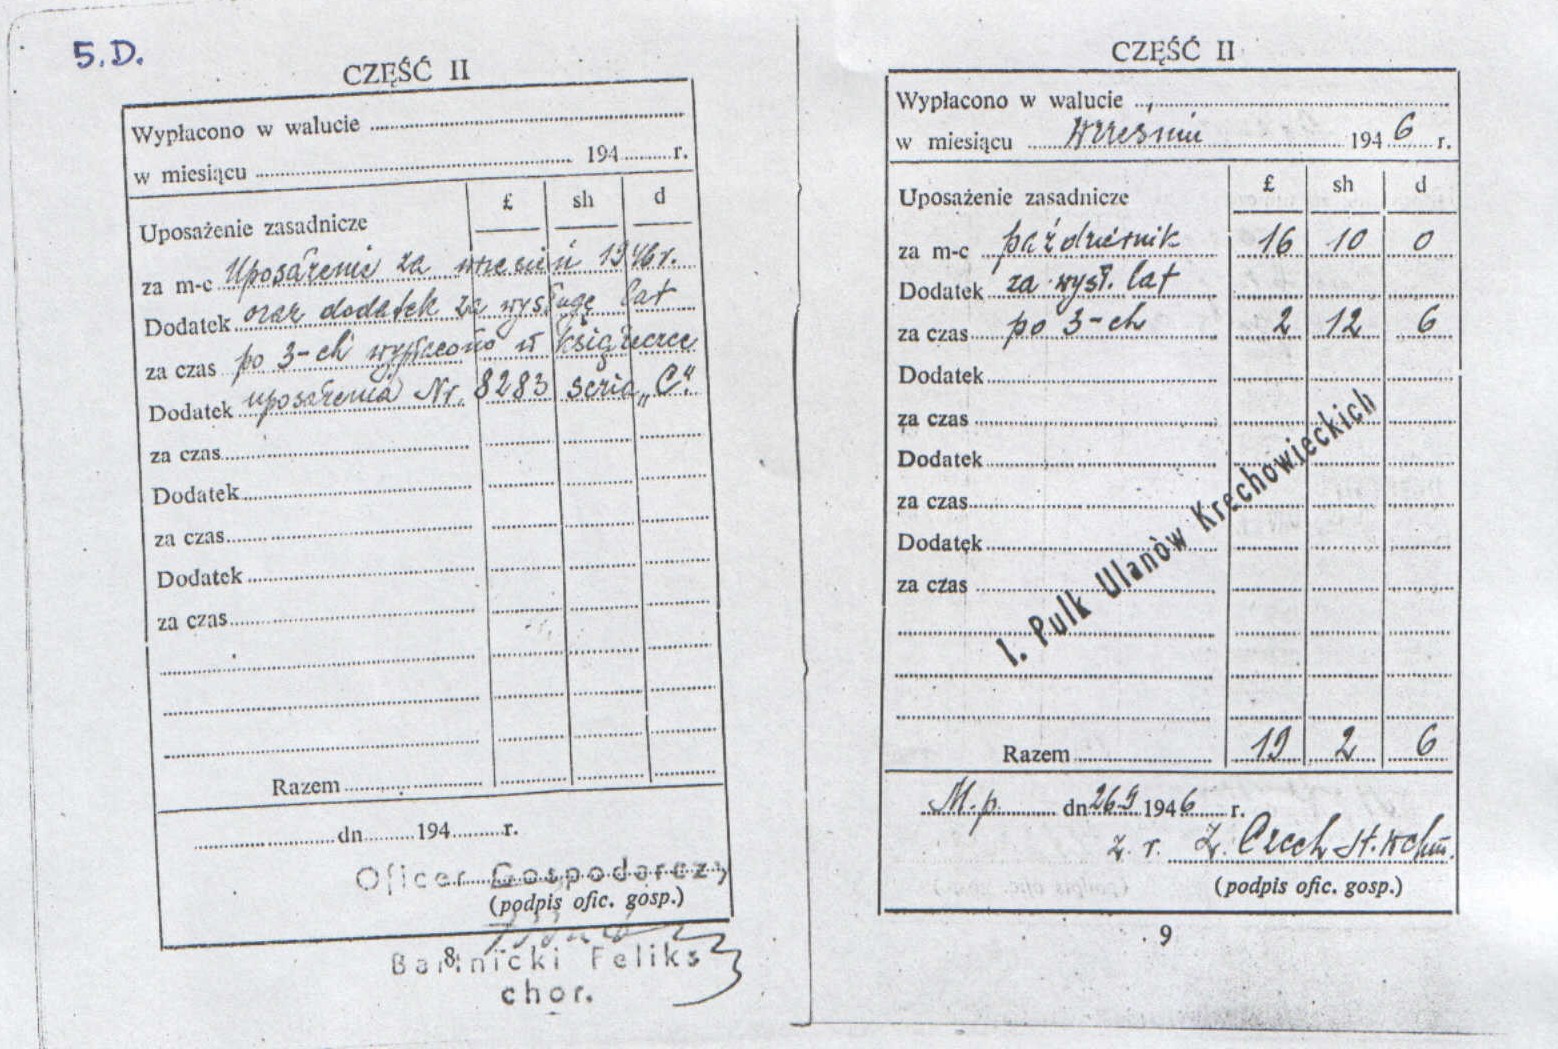 5.D.
CZĘŚĆ II
Wypłacono w walucie
w miesiącu 194 r.
Uposażenie zasadnicze £ sh d
za m-c Uposażenie za wrzesień 1946r.
Dodatek oraz dodatek za wysługę lat
za czas po 3-ch wypłacono w książeczce
Dodatek uposażenia Nr. 8283 seria „C".
za czas
Dodatek
za czas
Dodatek
za czas
Razem
dn 194 r.
Oficer Gospodarczy
(podpis ofic. gosp.)
8
Feliks
chor.
CZĘŚĆ II
Wypłacono w walucie
w miesiącu Wrześniu 1946 r.
Uposażenie zasadnicze £ sh d
za m-c październik 16 10 0
Dodatek za wysł. lat
za czas po 3-ch 2 12 6
Dodatek
za czas
Dodatek
za czas
Dodatek
za czas
1. Pulk Ulanòw Krechowieckich
Razem 19 2 6
M.p. dn 26.9 1946 r.
z. r. Czech st. wchm.
(podpis ofic. gosp.)
9